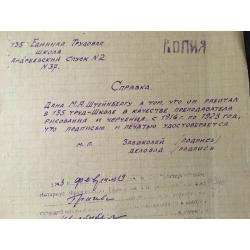 135 Единая Трудовая
школа
Андреевский Спуск №2
КОПИЯ
Справка
Дана М.А. Штейнбергу в том, что он работал
в 135 труд-школе в качестве преподавателя
рисования и черчения с 1916 г. по 1923 год,
что подписью и печатью удостоверяется
м.п. Завшколой (подпись)
деловод (подпись)